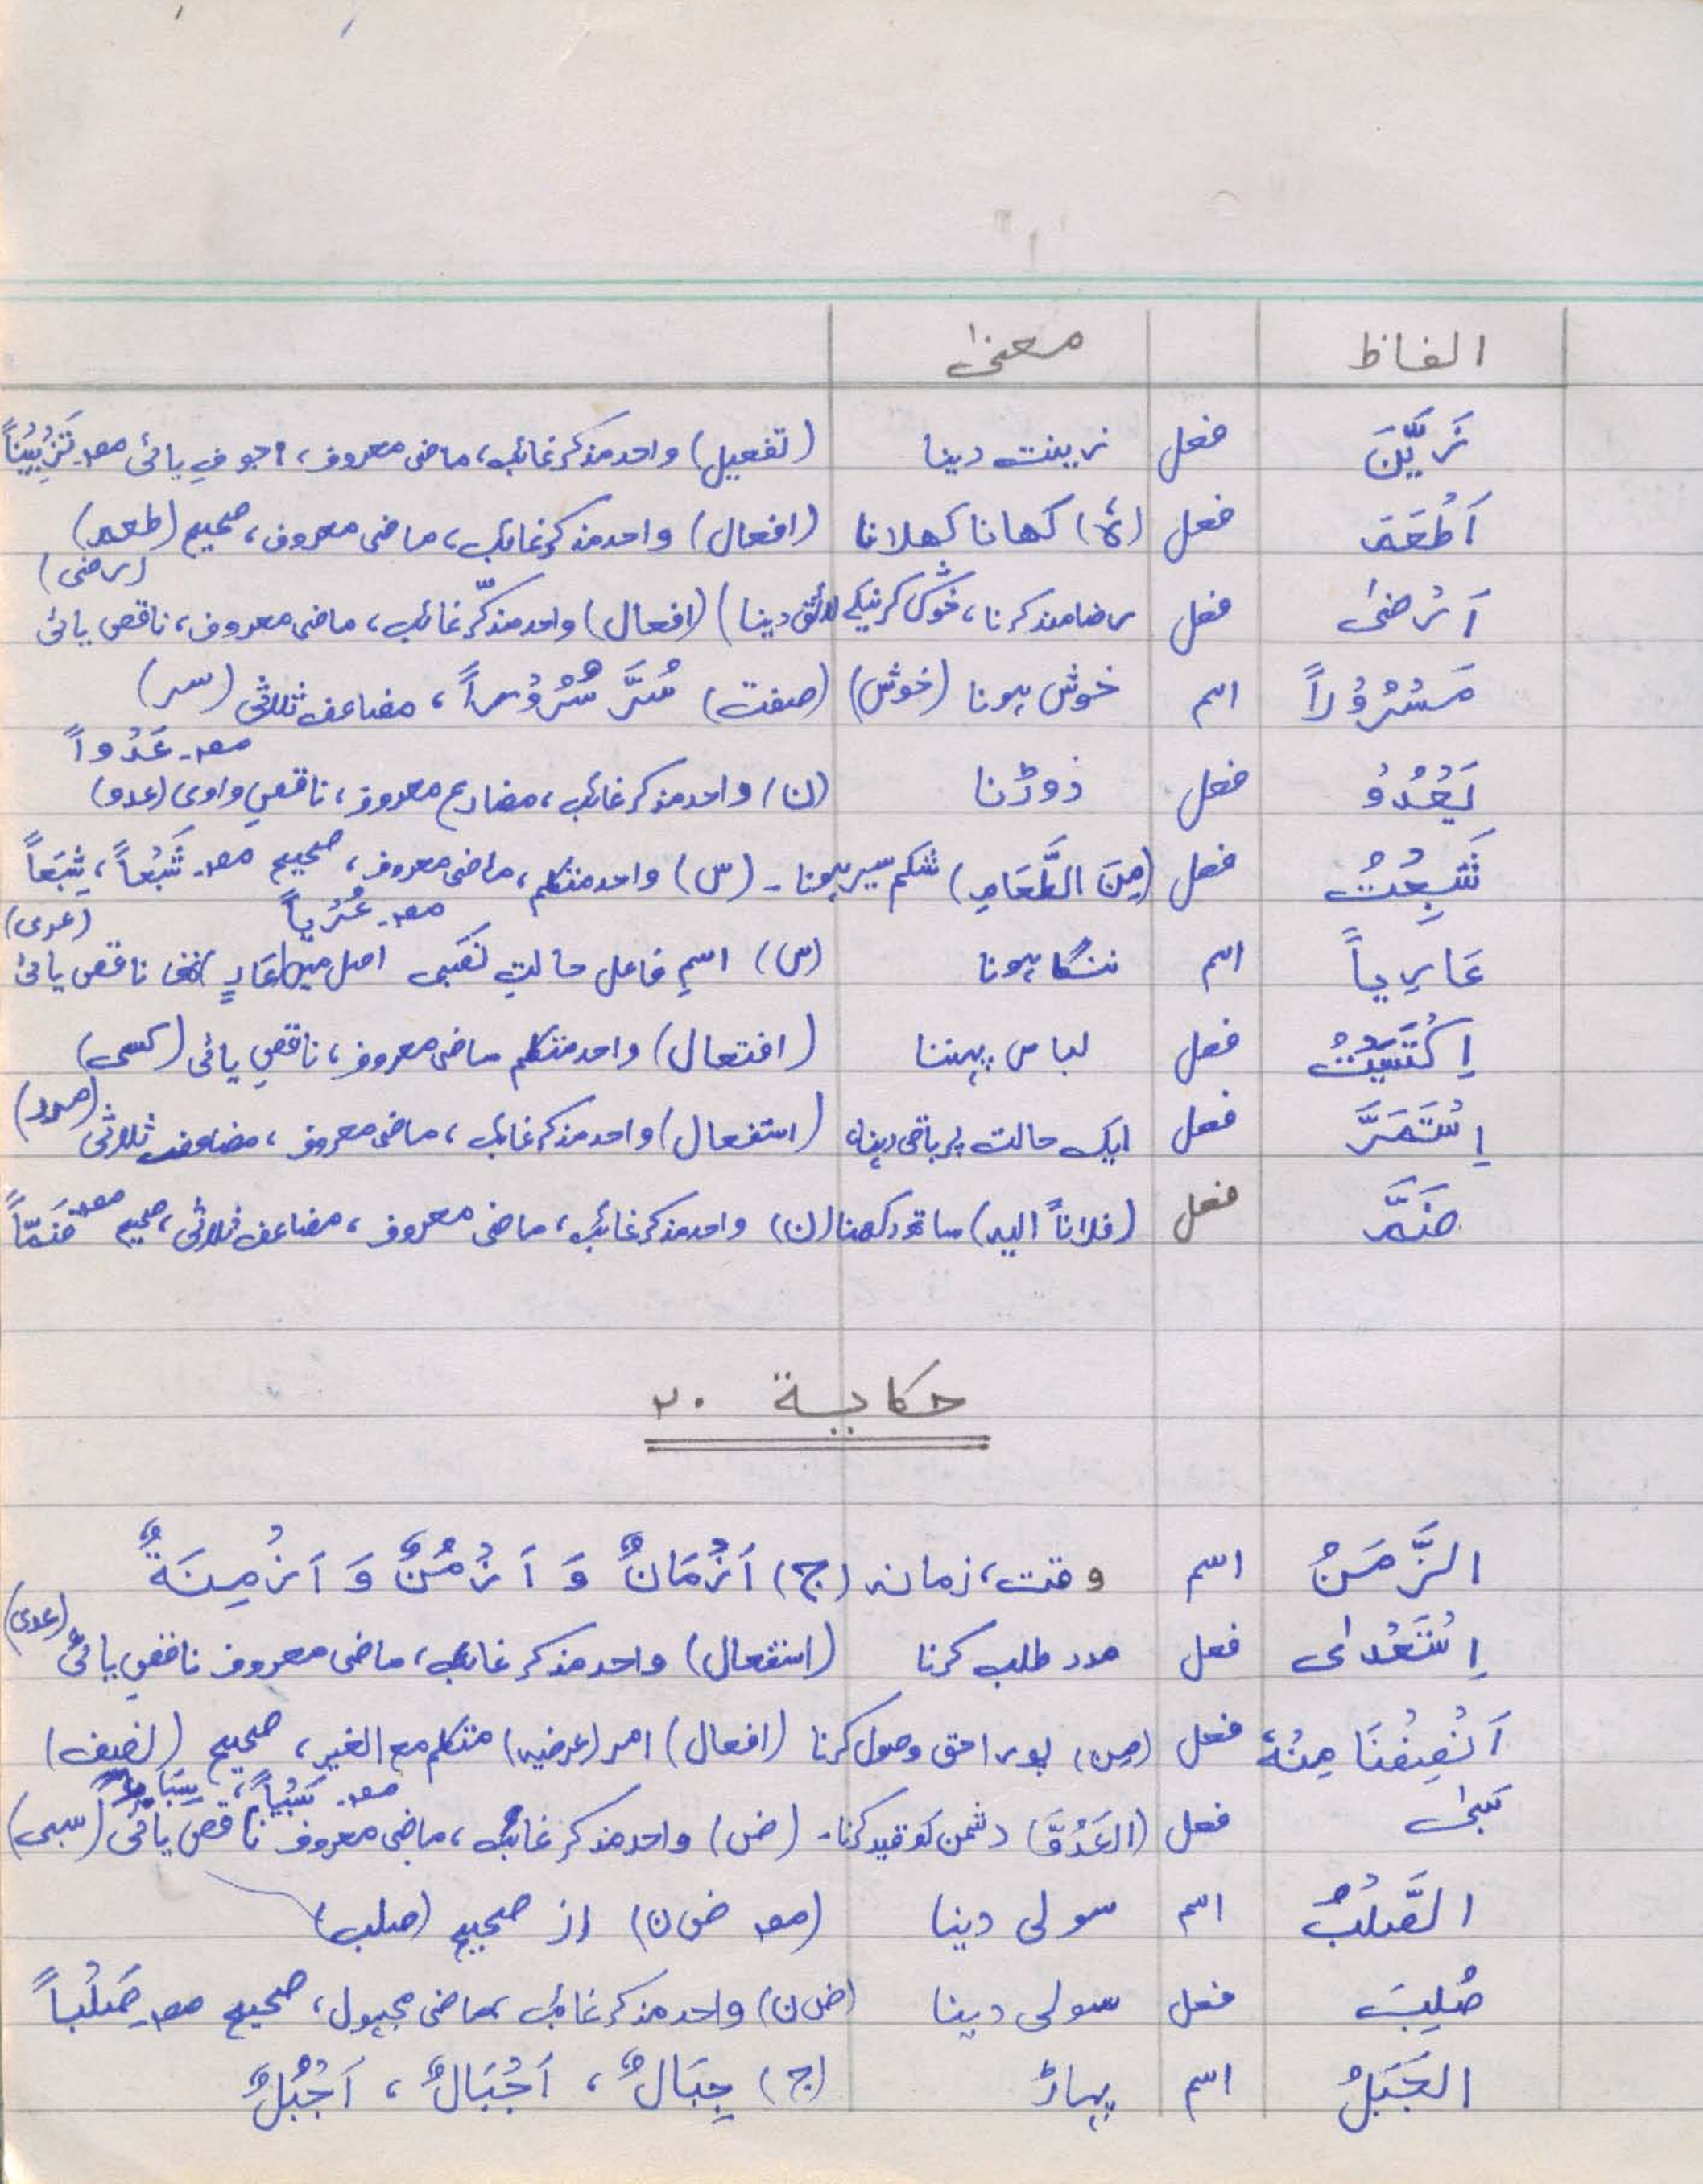 الفاظ معنیٰ
زَیَّنَ فعل زینت دینا (تفعیل) واحد مذکر غائب، ماضی معروف، اجوفِ یائی مصـ تَزْیِیْناً
اَطْعَمَ فعل (ہٗ) کھانا کھلانا (افعال) واحد مذکر غائب، ماضی معروف، صحیح (طعم)
(رضی)
اَرْضیٰ فعل رضامند کرنا، خوش کرنیکے لائق دینا) (افعال) واحد مذکّر غائب، ماضی معروف، ناقص یائی
مَسْرُوْراً اسم خوش ہونا (خوش) (صفت) سُرَّ سُرُوْراً، مضاعف ثلاثی (سر)
مصـ عَدْواً
یَعْدُوْ فعل دوڑنا (ن) واحد مذکر غائب، مضارع معروف، ناقصِ واوی (عدو)
شَبِعْتُ فعل (مِنَ الطَّعَامِ) شکم سیر ہونا۔ (س) واحد متکلم، ماضی معروف، صحیح مصـ شَبْعاً، شِبَعاً
مصـ عُرْیاً (عری)
عَارِیاً اسم ننگا ہونا (س) اسمِ فاعل حالتِ نصبی اصل میں عَارٍ تھا ناقص یائی
اِکْتَسَیْتُ فعل لباس پہننا (افتعال) واحد متکلم ماضی معروف، ناقصِ یائی (کسی)
اِسْتَمَرَّ فعل ایک حالت پر باقی رہنا (استفعال) واحد مذکر غائب، ماضی معروف، مضاعف ثلاثی (مرر)
ضَمَّ فعل (فلاناً الیہ) ساتھ رکھنا (ن) واحد مذکر غائب، ماضی معروف، مضاعف ثلاثی، صحیح مصـ ضَمّاً
حکایة ۲۰
الزَّمَنُ اسم وقت، زمانہ (ج) اَزْمَانٌ وَ اَزْمُنٌ وَ اَزْمِنَةٌ
اِسْتَعْدیٰ فعل مدد طلب کرنا (استفعال) واحد مذکر غائب، ماضی معروف ناقصِ یائی (عدی)
اَنْصِفْنَا مِنْهُ فعل (مِن) پورا حق وصول کرنا (افعال) امر (عرضیہ) متکلم مع الغیر، صحیح (نصف)
مصـ سَبْیاً، سِبَاءً
سَبیٰ فعل (العَدُوَّ) دشمن کو قید کرنا۔ (ض) واحد مذکر غائب، ماضی معروف ناقص یائی (سبی)
الصَّلْبُ اسم سولی دینا (مصـ ض ن) از صحیح (صلب)
صُلِبَ فعل سولی دینا (ض ن) واحد مذکر غائب، ماضی مجہول، صحیح مصـ صَلْباً
الجَبَلُ اسم پہاڑ (ج) جِبَالٌ، اَجْبَالٌ، اَجْبُلٌ